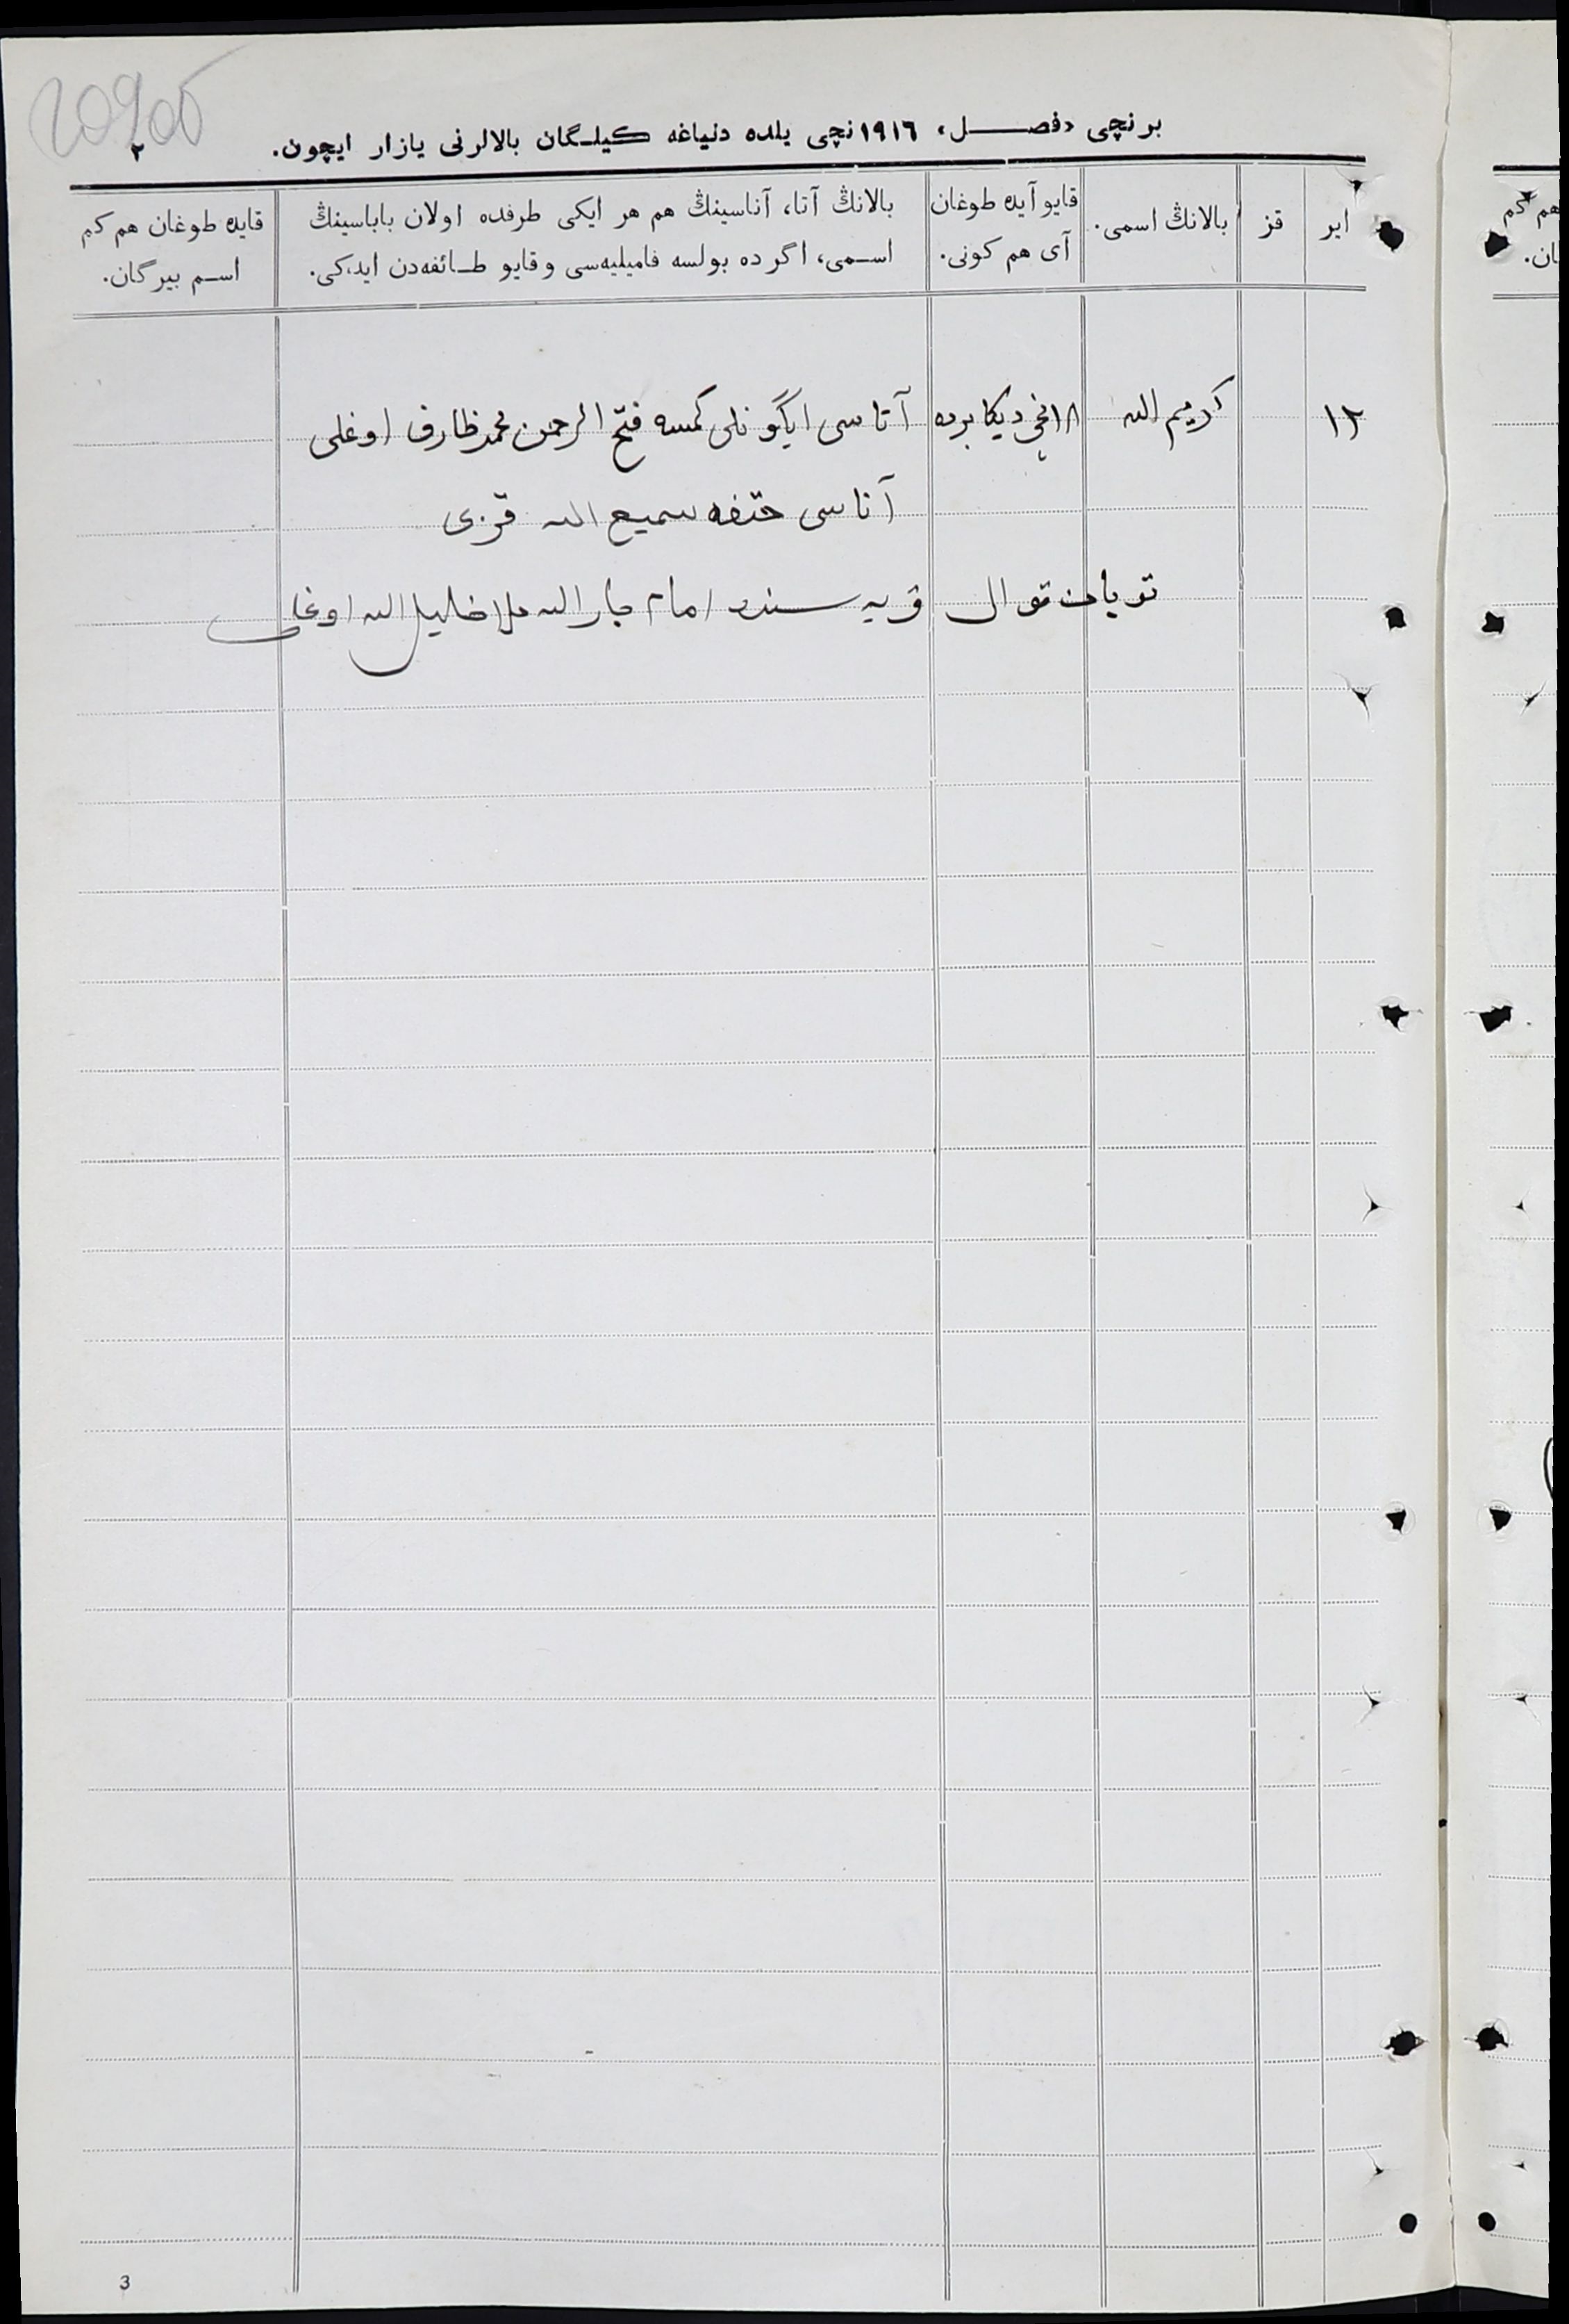 برنچی «فصل» ١٩١٦نچی يلده دنياغه كيلگان بالالرنی يازار ايچون.
٢
اير
قز
بالانڭ اسمی.
قايو آيده طوغان
آی هم كونی.
بالانڭ آتا، آناسينڭ هم هر ايكی طرفده اولان باباسينڭ
اسمی، اگر ده بولسه فاميليه‌سی و قايو طائفه‌دن ايدكی.
قايده طوغان هم كم
اسم بيرگان.
١٢
كريم الله
١٨نچی ديكابرده
آتاسی ايگونلی كمسه فتح الرحمن محمد ظارف اوغلی
آناسی حتفه سميع الله قزی
قريه سنده امام جار الله ملا خليل الله اوغلی
3